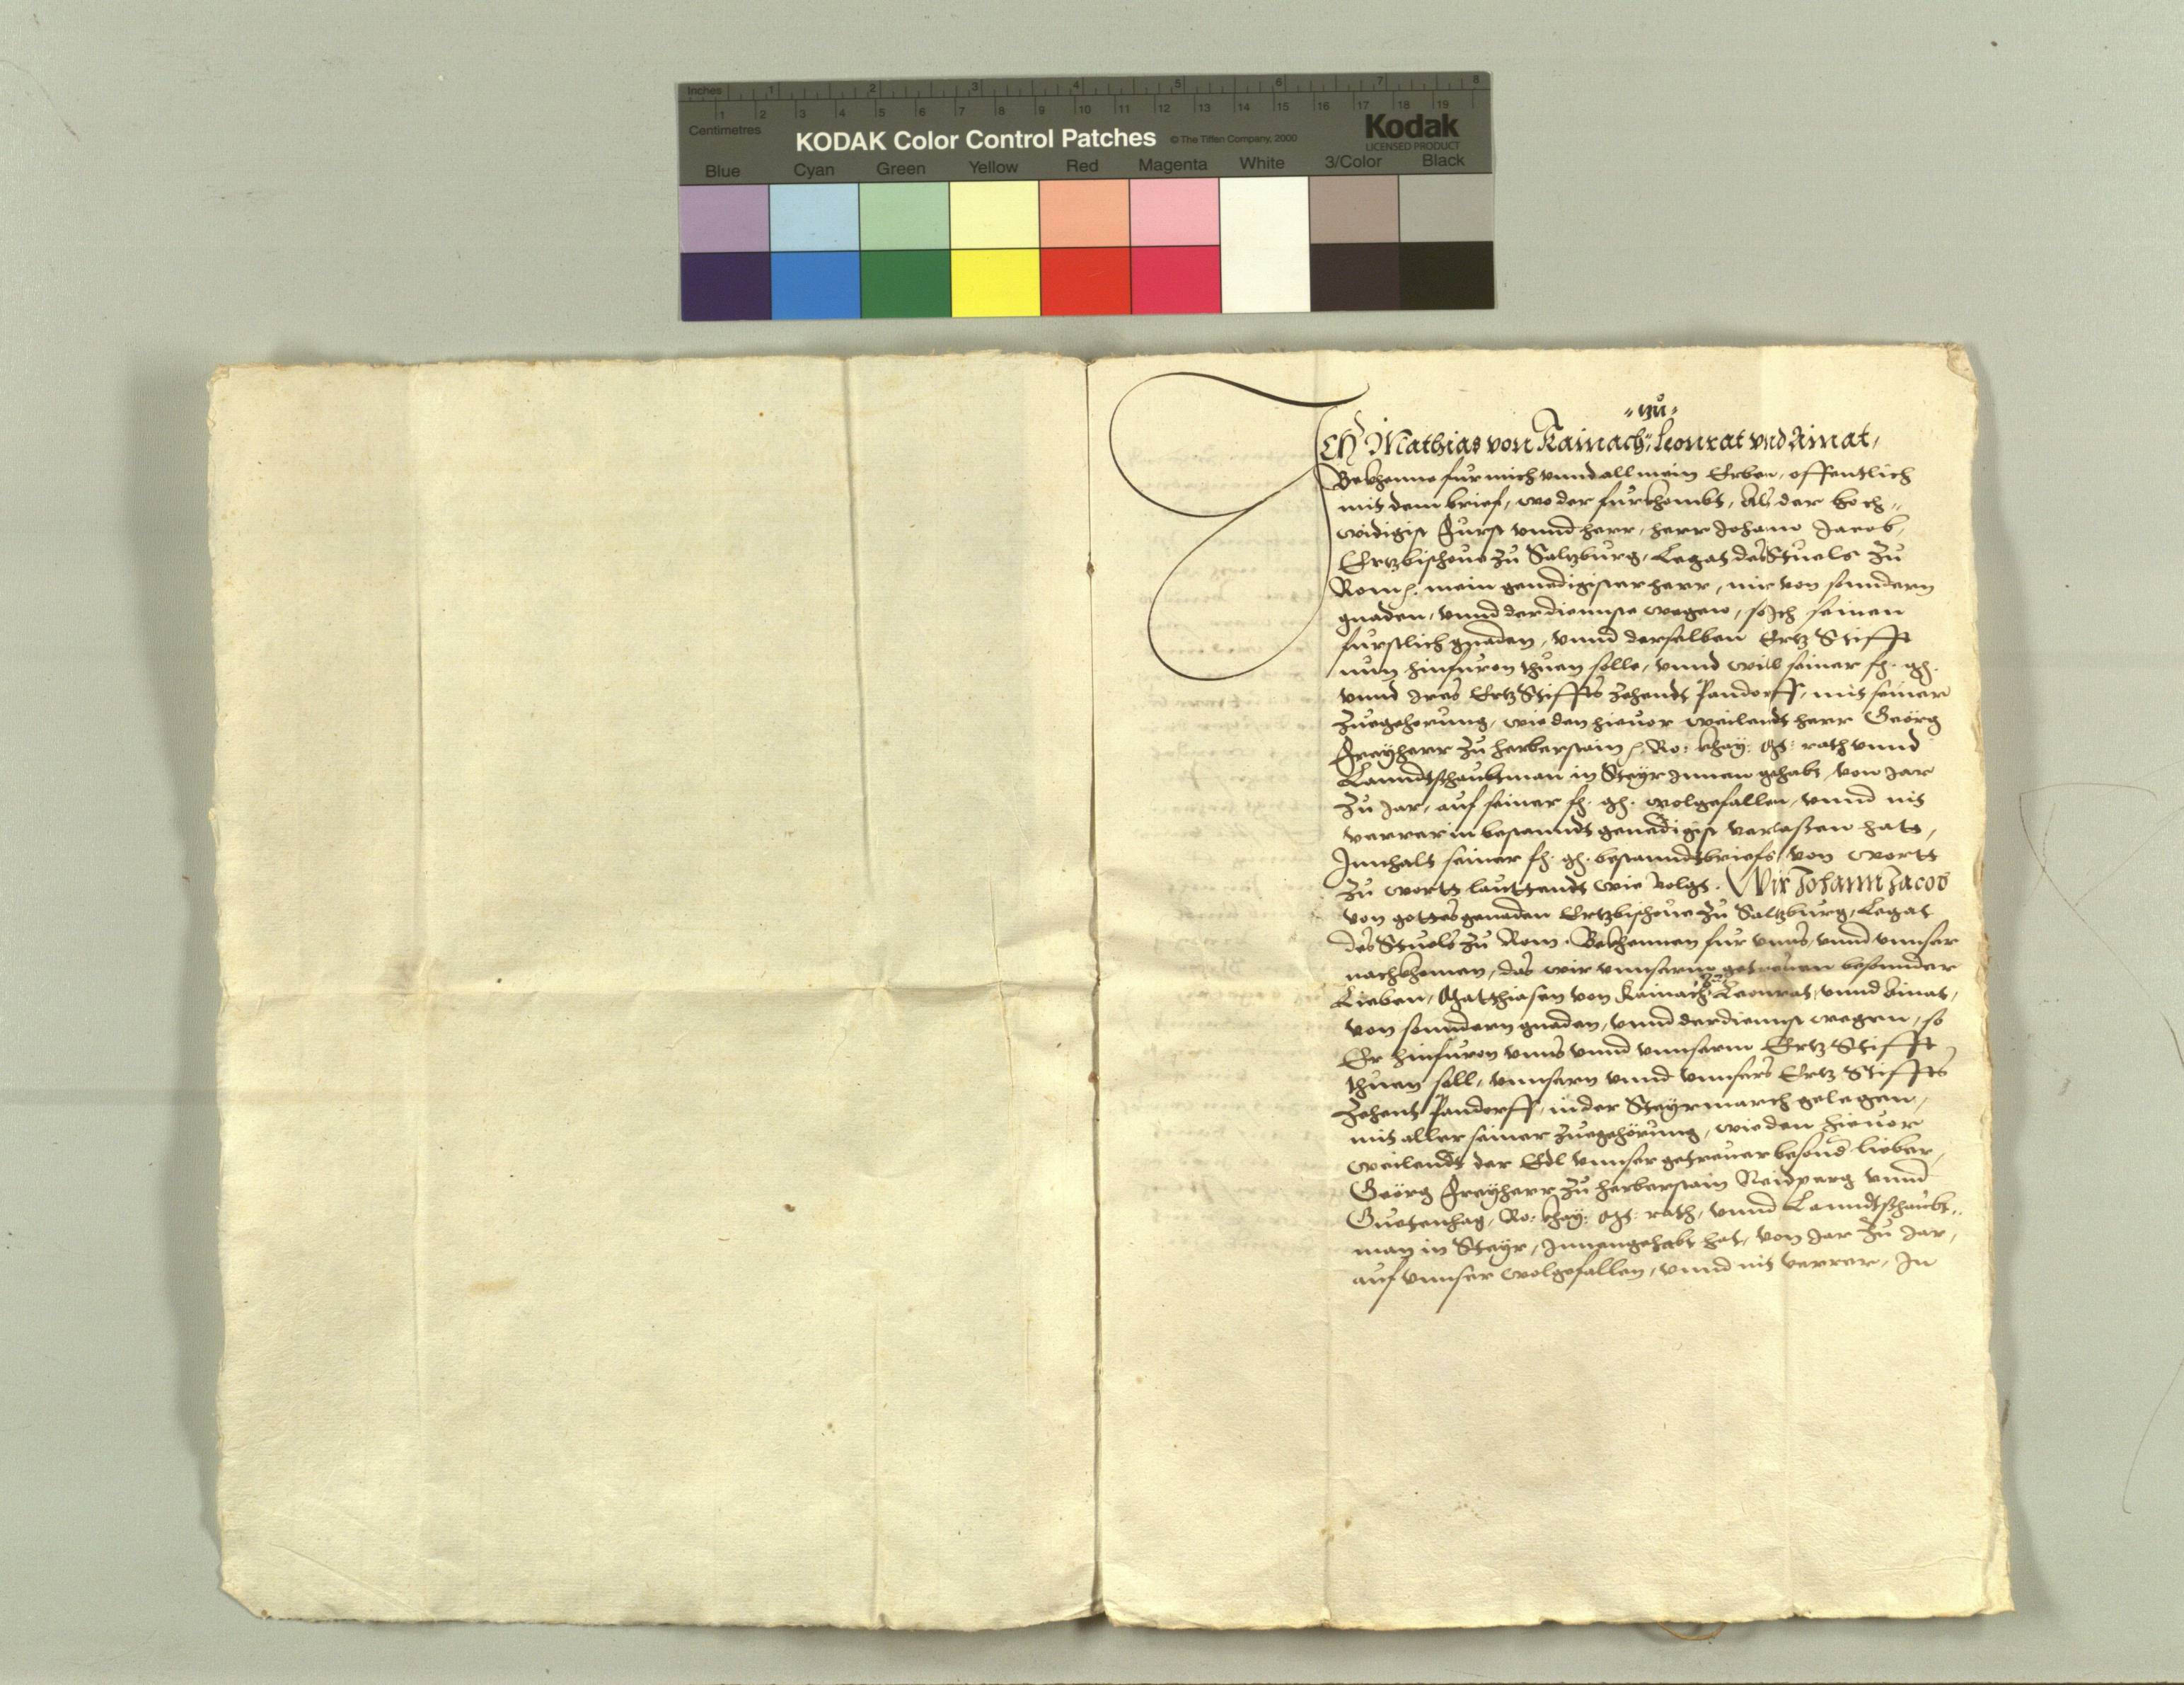 Inches 1 2 3 4 5 6 7 8
1 2 3 4 5 6 7 8 9 10 11 12 13 14 15 16 17 18 19
Centimetres
KODAK Color Control Patches © The Tiffen Company, 2000 Kodak
LICENSED PRODUCT
Blue Cyan Green Yellow Red Magenta White 3/Color Black
zu
Ich Mathias von Kainach, Leonrat vnd Ainat,
Bekhenne für mich vnnd all mein Erben, offentlich
mit dem brief, wo der fürkhombt, Als der hoch-
wirdigist Fürst vnnd herr, herr Johann Jacob,
Ertzbischoue zu Saltzburg, Legat des Stuels zu
Rom mein genedigister herr, mir von sonndern
gnaden, vnnd der diennste wegen, so Ich seinen
fürstlich gnaden, vnnd derselben Ertz Stifft
nun hinfüron thuen solle, vnnd will seiner fh. gh.
vnnd Ires Ertz Stiffts Zehendt Pandorff, mit seiner
Zuegehorung, wie den hieuor weilendt herr Geörg
Freyherr zu Herberstain Ro: khay: Mt: rath vnnd
Lanndtshaubtman in Steyr Innen gehabt, von Jar
zu Jar, auf seiner fh. gh. wolgefallen, vnnd nit
verrer in bestanndt genedigist verlaßen hatt,
Innhalt seiner fh. gh. bestanndtbriefs, von wortt
zu wortt lauttendt wie volgt. Wir Johann Jacob
von gottes genaden Ertzbischoue zu Saltzburg, Legat
des Stuels zu Rom. Bekhennen für vnns, vnnd vnnser
nachkhomen, das wir vnnserm getreuen besonnder
Lieben, Matthiasen von Kainach zu Leonrat, vnnd Ainat,
von sonndern gnaden, vnnd der diennst wegen, so
Er hinfüron vnns vnnd vnnserm Ertz Stifft
thuen soll, vnnsern vnnd vnnsers Ertz Stiffts
Zehent Pandorff, in der Steyrmarch gelegen,
mit aller seiner Zuegehörung, wie den hieuor
weilendt der Edl vnnser getreuer besond lieber,
Geörg Freyherr zu Herberstain Neidperg vnnd
Guetenhag, Ro: khay: Mt: rath, vnnd Lanndtshaubt-
man in Steyr, Innengehabt hat, von Jar zu Jar,
auf vnnser wolgefallen, vnnd nit verrer, In